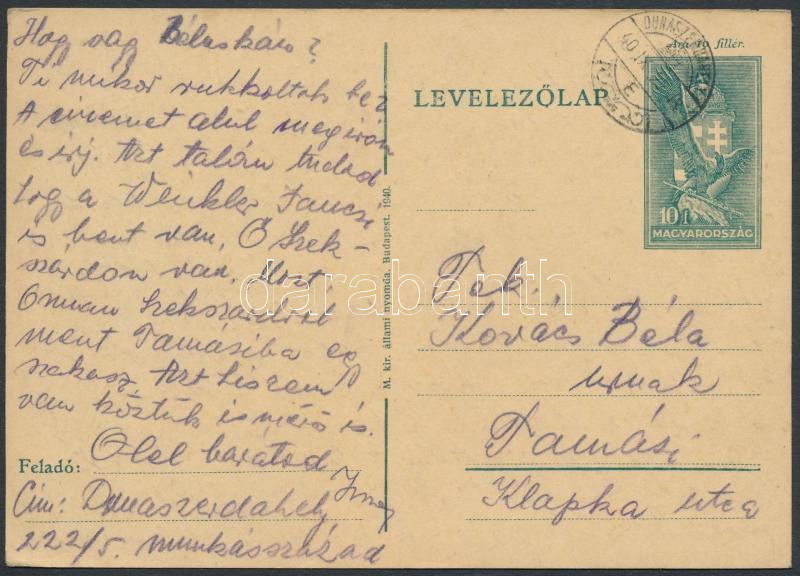 Hogy vagy Béluskám?
Ti mikor rukkoltok be?
A címemet alul megírom
és írj. Azt talán tudod
hogy a Winkler Jancsi
is bent van, Ő Szek-
szárdon van. Most
onnan Szekszárdról
ment Tamásiba egy
szakasz. Azt hiszem
van köztük ismerős is.
Ölel barátod
Feladó:
Cím: Dunaszerdahely
222/5. munkásszázad
M. kir. állami nyomda. Budapest. 1940.
LEVELEZŐLAP
Ára 10 fillér.
DUNASZERDAHELY
40
10 f
MAGYARORSZÁG
Tek.
Kovács Béla
urnak
Tamási
Klapka utca
darabanth